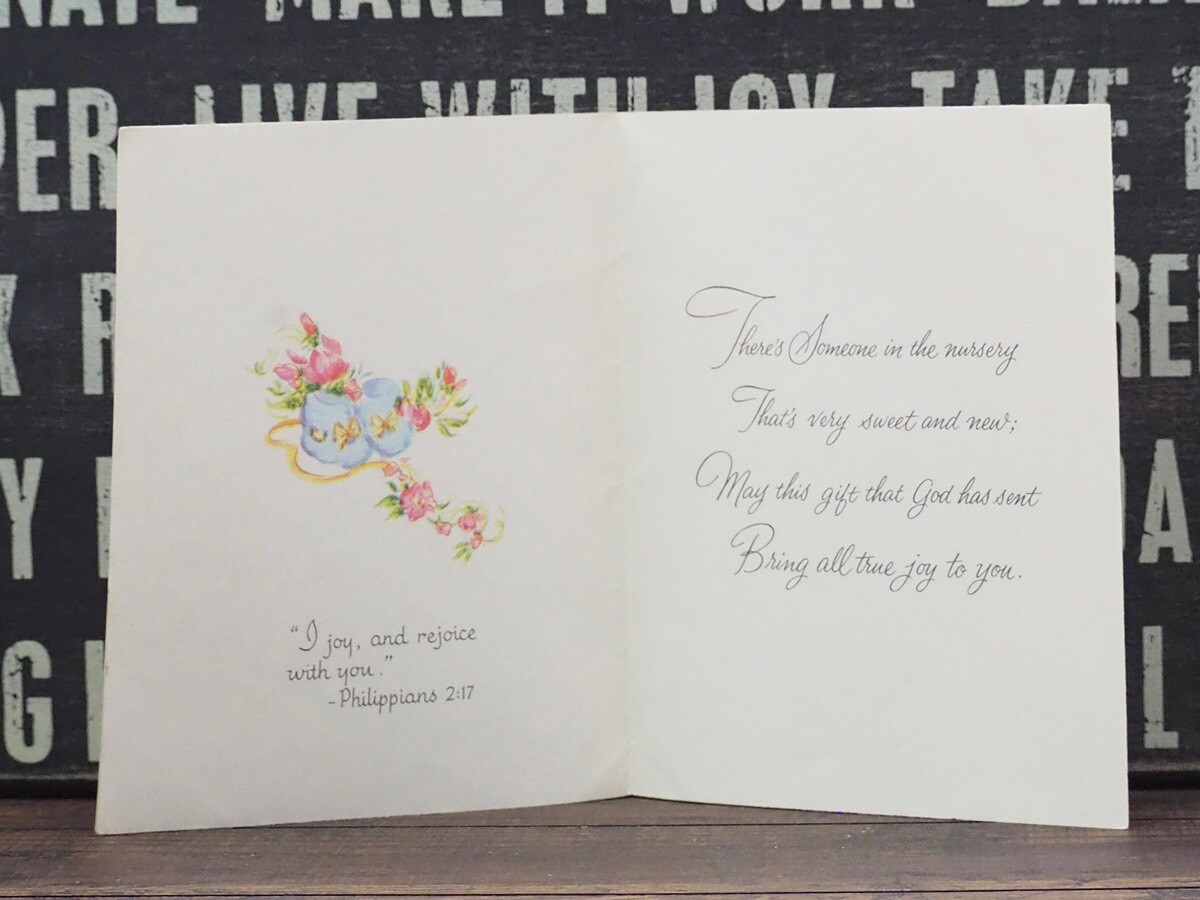 MAKE IT WORK
LIVE WITH JOY TAKE
"I joy, and rejoice
with you."
-Philippians 2:17
There's Someone in the nursery
That's very sweet and new;
May this gift that God has sent
Bring all true joy to you.